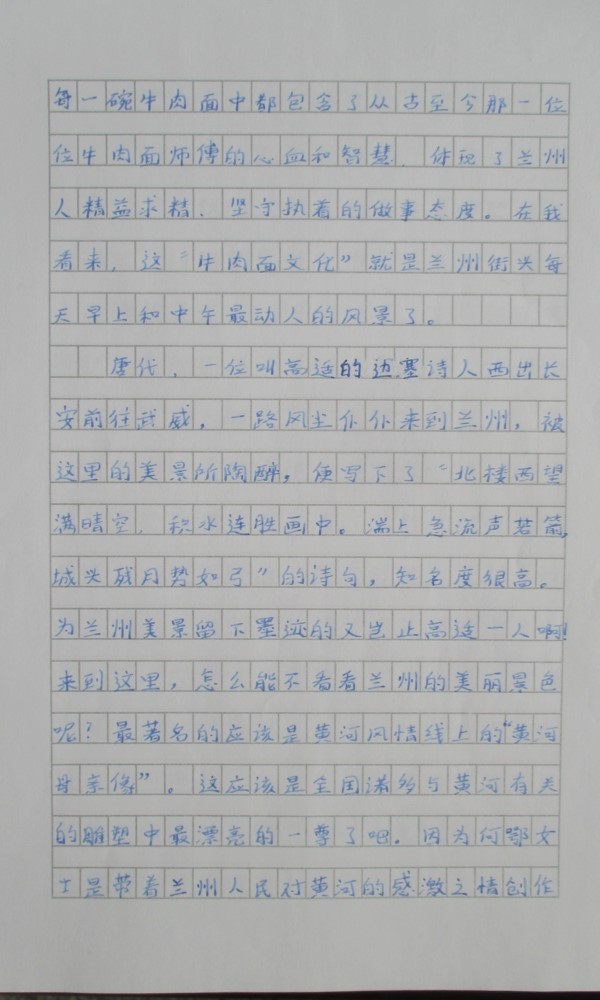 每一碗牛肉面中都包含了从古至今那一位
位牛肉面师傅的心血和智慧，体现了兰州
人精益求精、坚守执着的做事态度。在我
看来，这“牛肉面文化”就是兰州街头每
天早上和中午最动人的风景了。
唐代，一位叫高适的边塞诗人西出长
安前往武威，一路风尘仆仆来到兰州，被
这里的美景所陶醉，便写下了“北楼西望
满晴空，积水连胜画中。湍上急流声若箭，
城头残月势如弓”的诗句，知名度很高。
为兰州美景留下墨迹的又岂止高适一人啊！
来到这里，怎么能不看看兰州的美丽景色
呢？最著名的应该是黄河风情线上的“黄河
母亲像”。这应该是全国诸多与黄河有关
的雕塑中最漂亮的一尊了吧。因为何鄂女
士是带着兰州人民对黄河的感激之情创作